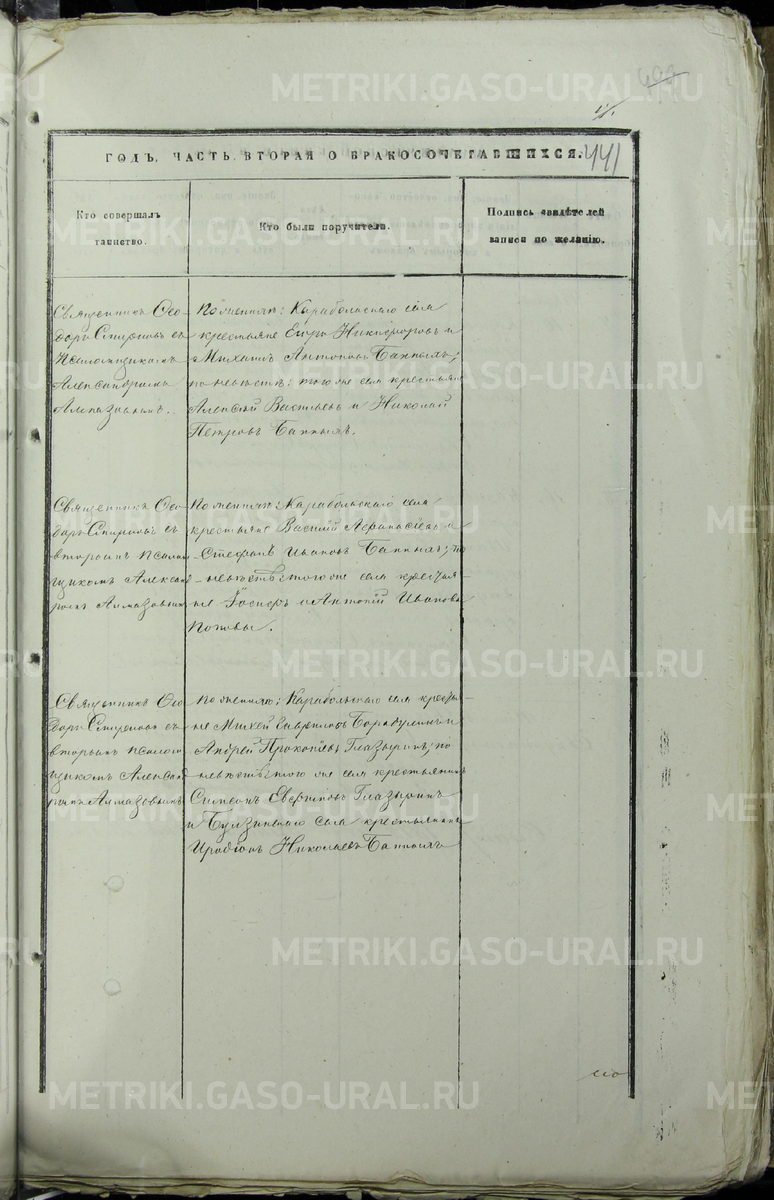 441
ГОДЪ, ЧАСТЬ ВТОРАЯ О БРАКОСОЧЕТАВШИХСЯ.
Кто совершалъ
таинство.
Кто были поручители.
Подпись свидѣтелей
записи по желанію.
Священникъ Ѳео-
доръ Спиринъ съ
Псаломщикомъ
Александромъ
Алмазовымъ.
По женихѣ: Карабольскаго села
крестьяне Егоръ Никифоровъ и
Михаилъ Антоновъ Банныхъ;
по невѣстѣ: того же села крестьяне
Алексѣй Васильевъ и Николай
Петровъ Банныхъ.
Священникъ Ѳео-
доръ Спиринъ съ
вторымъ псалом
щикомъ Алексан
ромъ Алмазовымъ
По женихѣ: Карабольскаго села
крестьяне Василій Аѳанасьевъ и
Стефанъ Ивановъ Банныхъ; по
невѣстѣ: того же села крестья-
не и Антоній Ивановы
Поповы.
Священникъ Ѳео
доръ Спиринъ съ
вторымъ псалом
щикомъ Алексан
Алмазовымъ
По женихѣ: Карабольскаго села кресть
не Михей Гавриловъ и
Андрей Прокопьевъ Глазыринъ; по
невѣстѣ: того же села крестьянинъ
Симеонъ Глазыринъ
и Булзинскаго села крестьянинъ
Иродіонъ Николаевъ Банныхъ
METRIKI.GASO-URAL.RU